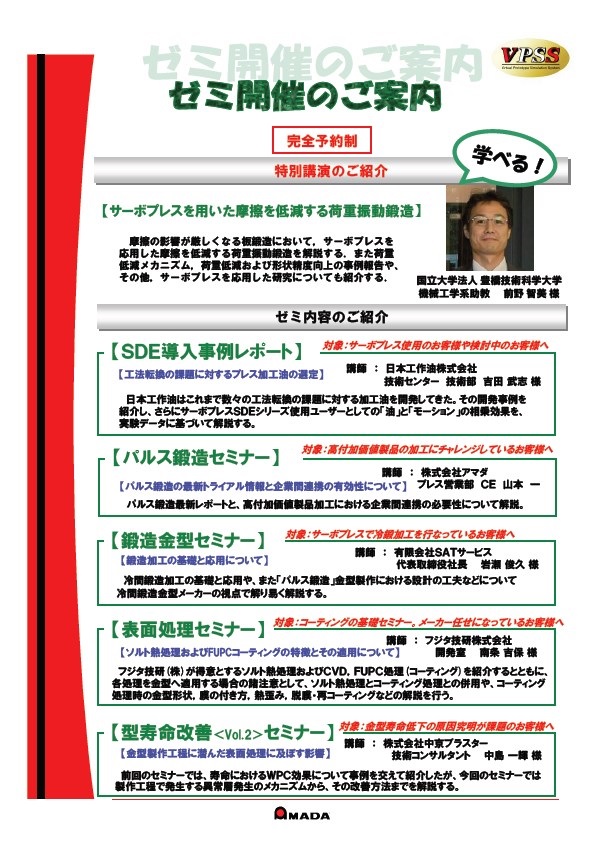 ゼミ開催のご案内
ゼミ開催のご案内
VPSS
完全予約制
学べる！
特別講演のご紹介
【サーボプレスを用いた摩擦を低減する荷重振動鍛造】
摩擦の影響が厳しくなる板鍛造において，サーボプレスを
応用した摩擦を低減する荷重振動鍛造を解説する．また荷重
低減メカニズム，荷重低減および形状精度向上の事例報告や，
その他，サーボプレスを応用した研究についても紹介する．
国立大学法人 豊橋技術科学大学
機械工学系助教　前野 智美 様
ゼミ内容のご紹介
【SDE導入事例レポート】
対象：サーボプレス使用のお客様や検討中のお客様へ
【工法転換の課題に対するプレス加工油の選定】
講師 ： 日本工作油株式会社
技術センター 技術部 吉田 武志 様
日本工作油はこれまで数々の工法転換の課題に対する加工油を開発してきた。その開発事例を
紹介し、さらにサーボプレスSDEシリーズ使用ユーザーとしての「油」と「モーション」の相乗効果を、
実験データに基づいて解説する。
【パルス鍛造セミナー】
対象：高付加価値製品の加工にチャレンジしているお客様へ
【パルス鍛造の最新トライアル情報と企業間連携の有効性について】
講師 ： 株式会社アマダ
プレス営業部 CE 山本 一
パルス鍛造最新レポートと、高付加価値製品加工における企業間連携の必要性について解説。
【鍛造金型セミナー】
対象：サーボプレスで冷鍛加工を行なっているお客様へ
【鍛造加工の基礎と応用について】
講師 ： 有限会社SATサービス
代表取締役社長　岩瀬 俊久 様
冷間鍛造加工の基礎と応用や、また「パルス鍛造」金型製作における設計の工夫などについて
冷間鍛造金型メーカーの視点で解り易く解説する。
【表面処理セミナー】
対象：コーティングの基礎セミナー。メーカー任せになっているお客様へ
【ソルト熱処理およびFUPCコーティングの特徴とその適用について】
講師 ： フジタ技研株式会社
開発室　南条 吉保 様
フジタ技研（株）が得意とするソルト熱処理およびCVD、FUPC処理（コーティング）を紹介するとともに、
各処理を金型へ適用する場合の諸注意として、ソルト熱処理とコーティング処理との併用や、コーティング
処理時の金型形状，膜の付き方，熱歪み，脱膜・再コーティングなどの解説を行う。
【型寿命改善<Vol.2>セミナー】
対象：金型寿命低下の原因究明が課題のお客様へ
【金型製作工程に潜んだ表面処理に及ぼす影響】
講師 ： 株式会社中京ブラスター
技術コンサルタント　中島 一輝 様
前回のセミナーでは、寿命におけるWPC効果について事例を交えて紹介したが、今回のセミナーでは
製作工程で発生する異常層発生のメカニズムから、その改善方法までを解説する。
AMADA